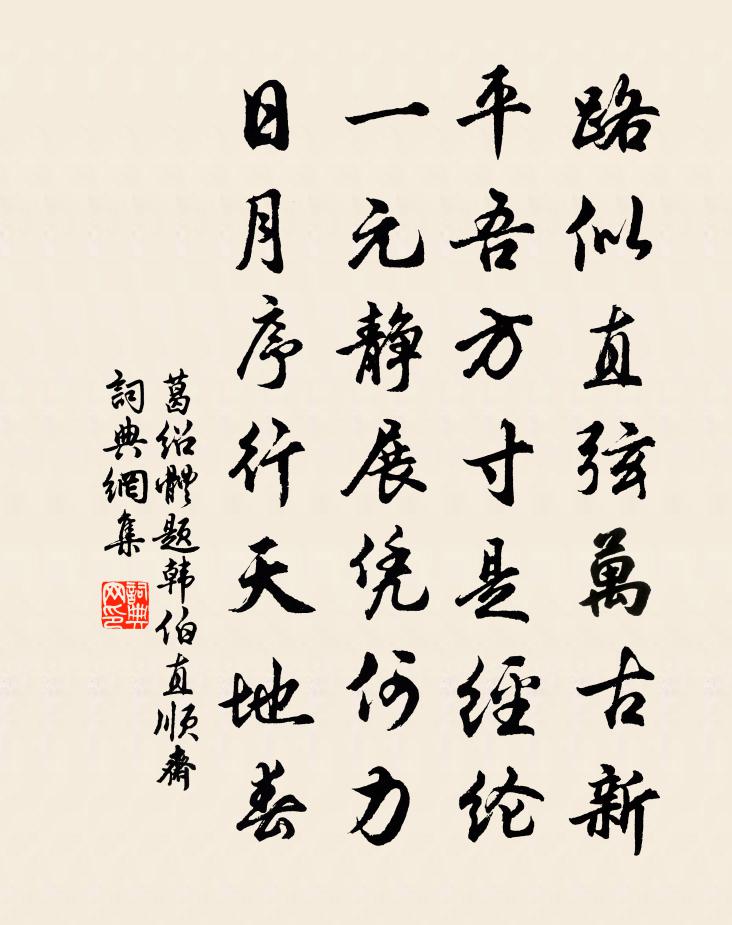 路似直弦萬古新
平吾方寸是經纶
一元静展凭何力
日月序行天地春
葛绍體题韩伯直順齋
詞典網集
詞典网印